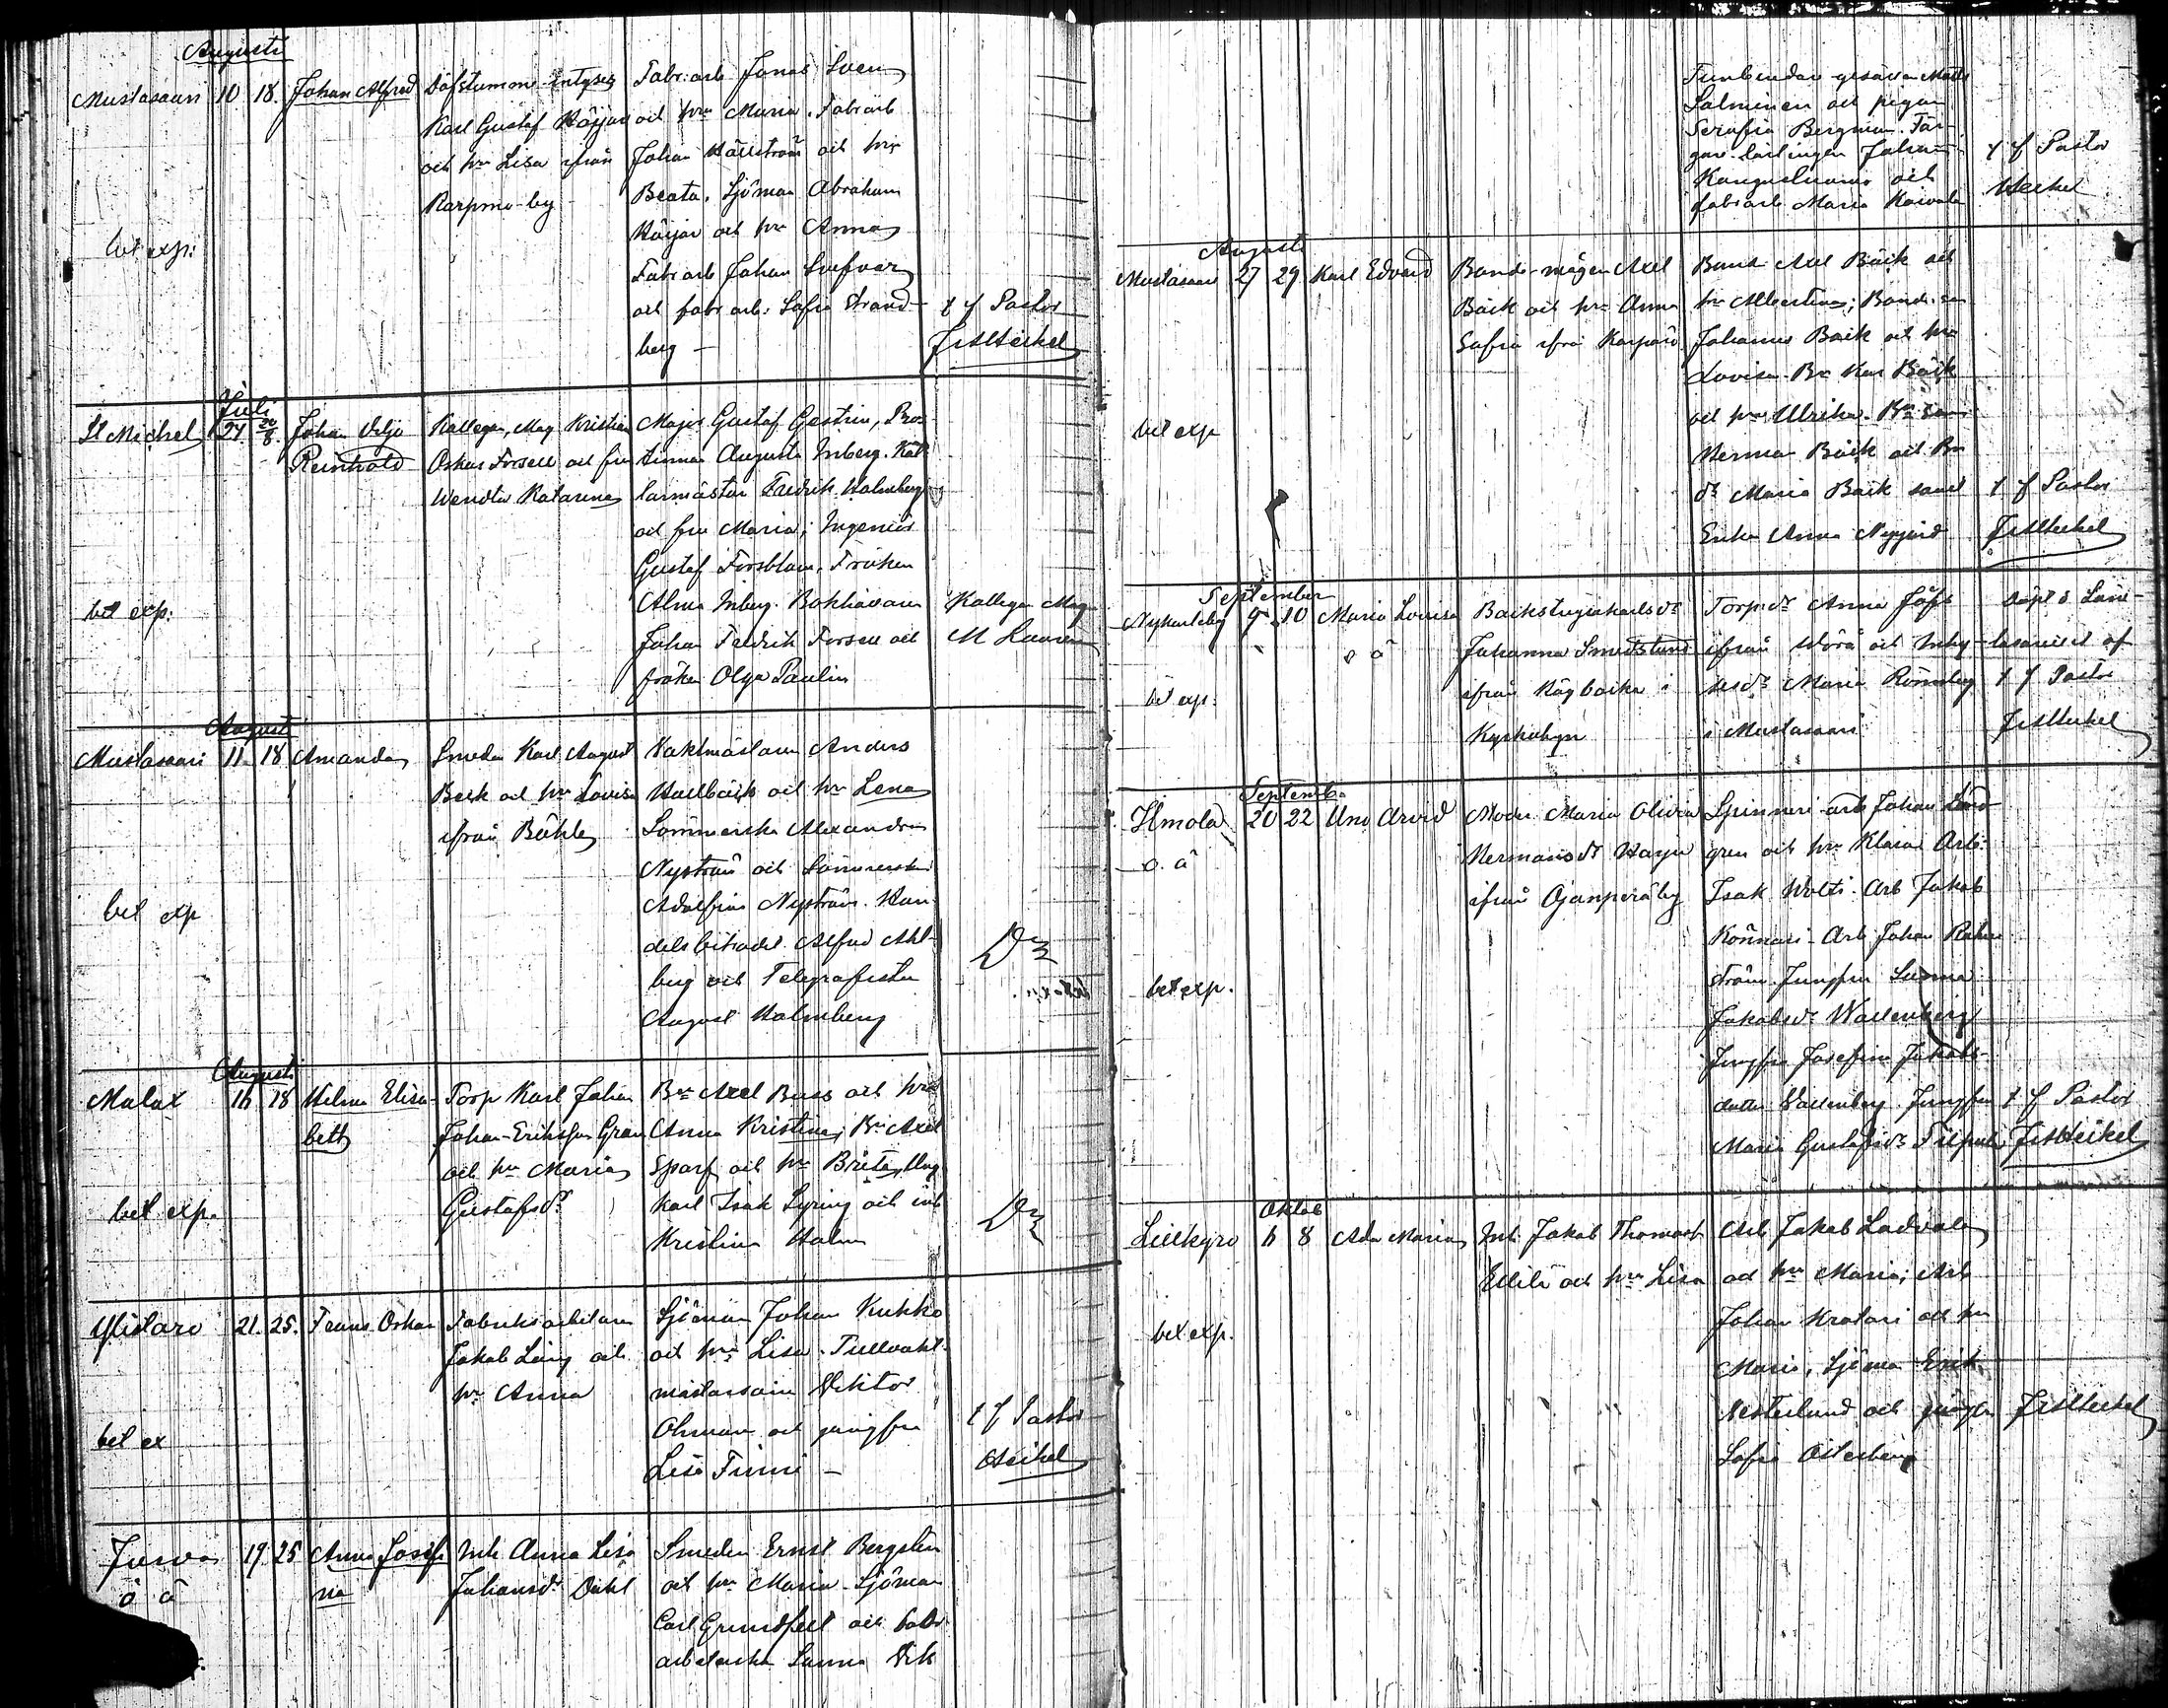 Augusti
Mustasaari 10 18. Johan Alfred
Döfstumme Inhyses
Karl Gustaf Häggar
och hu Lisa ifrån
Karpmo by
Fabr: arb Jonas Sven
och hu Maria. Fabr arb
Johan Hällström och hu
Beata, Sjöman Abraham
och hu Anna
Fabr arb Johan
och fabr arb: Sofia Strand-
berg –
t f Pastor
Heikel
bet exp:
Juli
St Michel 24 20/8. Johan Veljo
Reinhold
Kollegen, Mag Kristian
Oskar Forsell och fru
Wendla Katarina
Major Gustaf Gestrin, Pro-
stinnan Augusta Inberg. Käl-
larmästar Fredrik Holmberg
och fru Maria; Ingeniör
Gustaf Forsblom, Fröken
Alma Inberg. Bokhållaren
Johan Fredrik Forsell och
fröken Olga Paulin
Kollegen Mag
bet exp:
Augusti
Mustasaari 11. 18 Amanda
Smeden Karl August
Beck och hu Lovisa
ifrån Böhle
Vaktmästaren Anders
Hallbäck och hu Lena
Sömmerska Alexandra
Nyström och Sömmerskan
Adolfina Nyström. Han-
delsbiträdet Alfred Ahl-
berg och Telegrafisten
August Holmberg
Do
bet exp
Augusti
Malax 16 18 Helena Elisa-
beth
Torp Karl Johan
Johan Eriksson Gran
och hu Maria
Gustafsdr
Bn Axel Buss och hu
Anna Kristina, Bn Axel
Sparf och hu Brita, Ung
Karl Isak Syring och inh
Kristina Holm
Do
bet exp.
Ylistaro 21. 25. Frans Oskar
Fabriksarbetaren
Jakob Läng och
hu Anna
Sjöman Johan Kukko
och hu Lisa. Tullvakt-
mästaren Viktor
Öhman och jungfru
Lisa Finni –
t f Pastor
Heikel
bet ex
Jurva 19 25 Anna Josefi-
na
o ä
Inh Anna Lisa
Johansdr Dahl
Smeden Ernst Bergsten
och hu Maria. Sjöman
Carl Grundfelt och fabr
arbeterskan Sanna Vik
Tunbindar gesällen Matts
Salminen och pigan
Serafia Bergman. Fär-
gar lärlingen Johan
Kangasluoma och
fabr arb Maria Koivula
t f Pastor
Heikel
Augusti
Mustasaari 27 29 Karl Edvard
Bonde-mågen Axel
Bäck och hu Anna
Sofia ifrån Karperö
Bond Axel Bäck och
hu Albertina; Bonde son
Johannes Bäck och hu
Lovisa. Bn Karl Bäck
och hu Ulrika. Bn son
Herman Bäck och Bn
dr Maria Bäck samt
Enka Anna Nygård
t f Pastor
Heikel
bet exp
September
Nykarleby 9 10 Maria Lovisa
o ä
Backstugukarls dr
Johanna Smedslund
ifrån Kågbacka i
Kyrkobyn
Torp: dr Anna Jåfs
ifrån Wörå och Inhy-
ses dr Maria Rönnberg
i Mustasaari
Döpt å Läns-
lasarettet af
t f Pastor
Heikel
bet exp.
September
Ilmola 20 22 Uno Arvid
o. ä
Moder Maria Olivia
Hermansdr
ifrån Ojanperä by
Spinneri-arb Johan Lind-
gren och hu Klara Arb:
Isak Wolti. Arb Jakob
Könnari. Arb Johan
ström. Jungfru Sanna
Jakobsdr Wallenberg
Jungfru Josefina Jakobs-
dotter Wallenberg. Jungfru
Maria Gustafsdr
t f Pastor
Heikel
bet exp.
Oktob
Lillkyro 6 8 Ada Maria
Inh. Jakob Thomass
och hu Lisa
Arb Jakob Ladvala
och hu Maria; Arb
Johan Kratari och hu
Maria, Sjöman Erik
Westerlund och jungfru
Sofia Österberg
Heikel
bet exp.